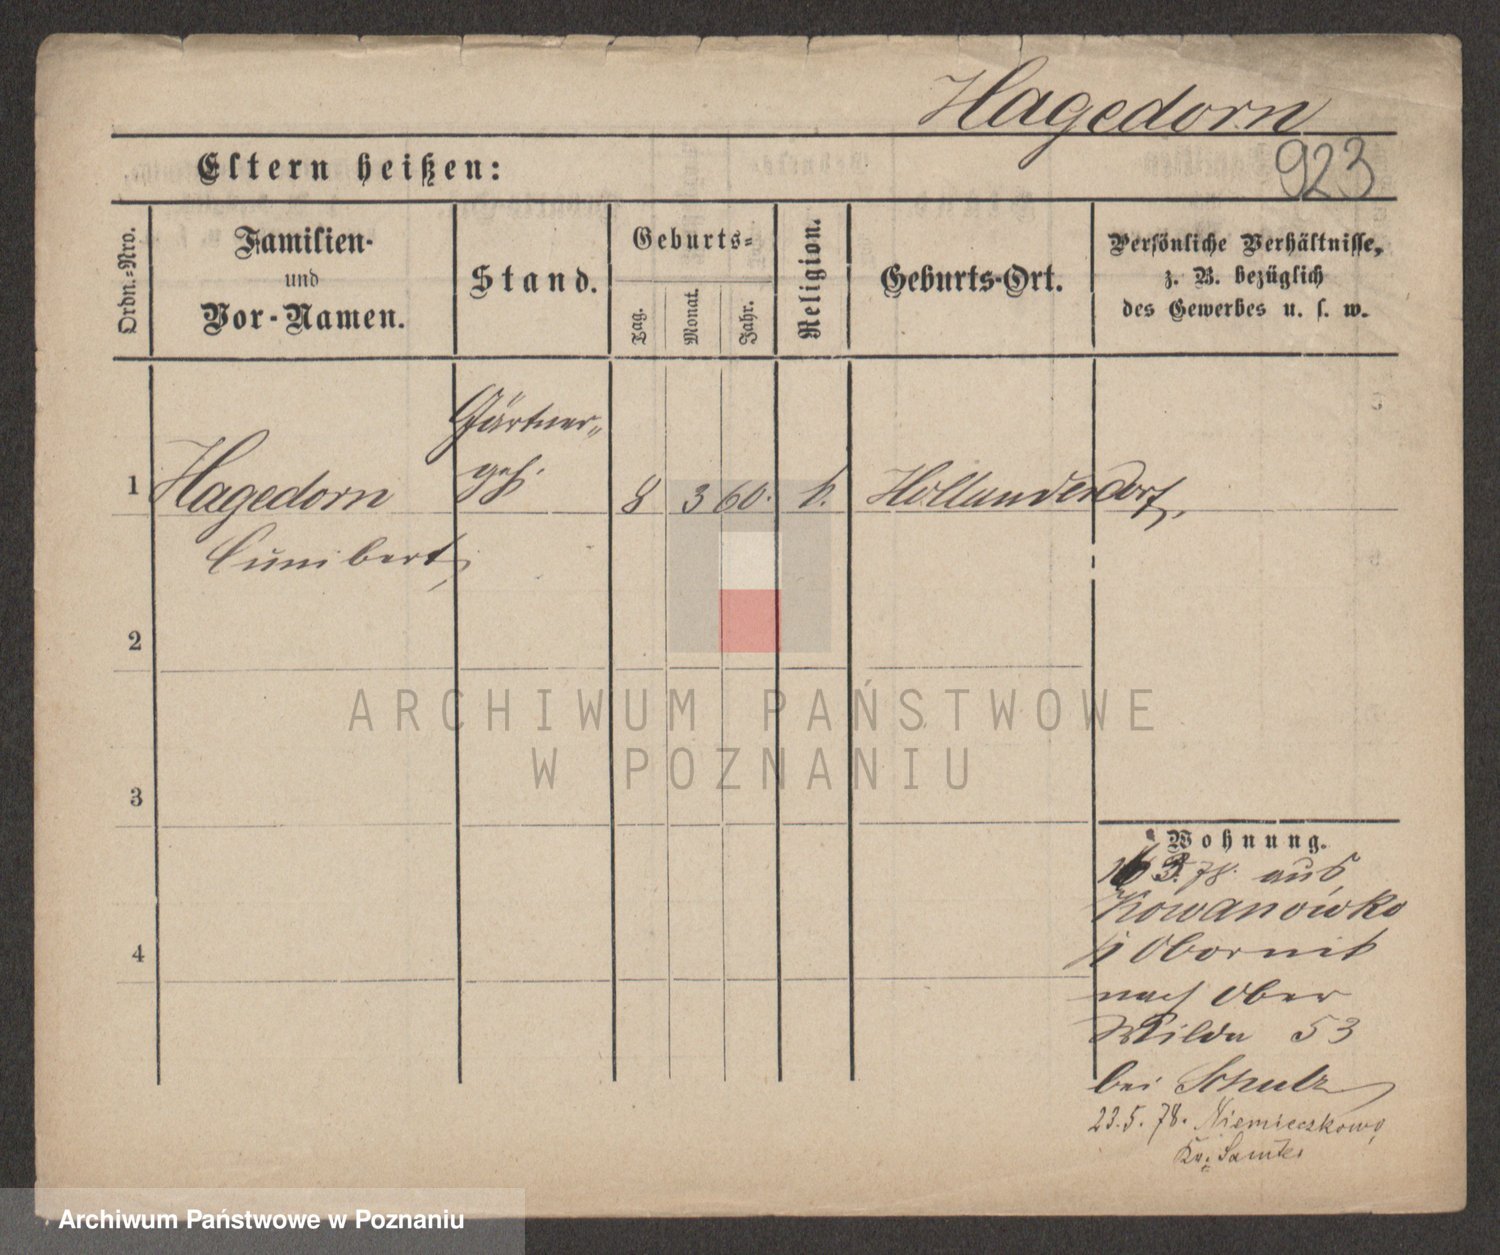 Hagedorn
923
Eltern heißen:
Ordn.-Nro.
Familien-
und
Vor-Namen.
Stand.
Geburts-
Tag.
Monat.
Jahr.
Religion.
Geburts-Ort.
Persönliche Verhältnisse,
z. B. bezüglich
des Gewerbes u. s. w.
Gärtner-
geh.
1 Hagedorn 8 3 60. k. Hollanderdorf,
Cunibert,
2
3
4
Wohnung.
16 3. 78. aus
Kowanowko
b Obornik
nach Ober
Wilda 53
bei Schulz
23.5.78. Niemieczkowo,
Kr. Samter
ARCHIWUM PAŃSTWOWE
W POZNANIU
Archiwum Państwowe w Poznaniu